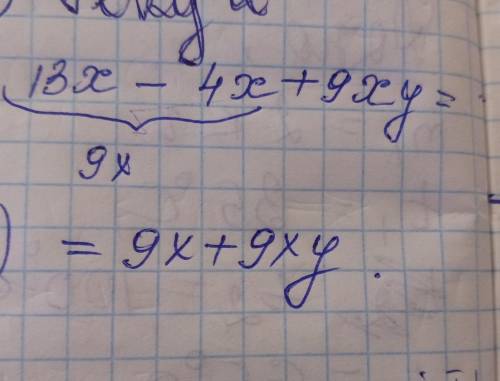 13x − 4x + 9xy =
9x
= 9x + 9xy.